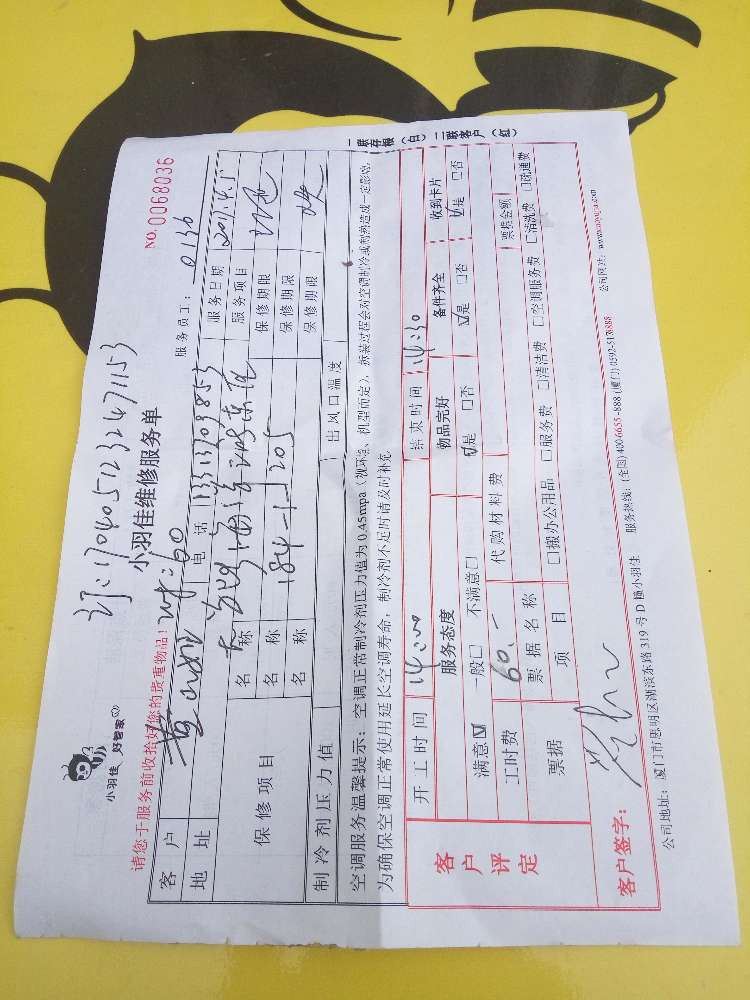 订:1704051232471153
小羽佳 好管家
小羽佳维修服务单
NO.0068036
请您于服务前收拾好您的贵重物品! wf:60
服务员工: 0136
客户 黄小姐 电话 13313709853 服务日期 2017.4.5
地址 服务项目
保修项目 名称 保修期限
名称 184-1-1205 保修期限
名称 保修期限
制冷剂压力值 出风口温度
空调服务温馨提示: 空调正常制冷剂压力值为0.45mpa(视环境、机型而定), 拆装过程会对空调制冷或制热造成一定影响,
为确保空调正常使用延长空调寿命, 制冷剂不足时请及时补充
一联存根(白)二联客户(红)
客户评定
开工时间 14:00 结束时间 14:30
服务态度 物品完好 备件齐全 收到卡片
满意☑ 一般□ 不满意□ ☑是 □否 ☑是 □否 ☑是 □否
工时费 60.- 代购材料费
票据 票据名称 票据金额
项目 □搬办公用品 □服务费 □清洁费 □空调服务费 □清洗费 □疏通费
客户签字:
公司地址: 厦门市思明区湖滨东路319号D幢小羽佳 服务热线: (全国)400-6655-888 (厦门)0592-5138888 公司网站: